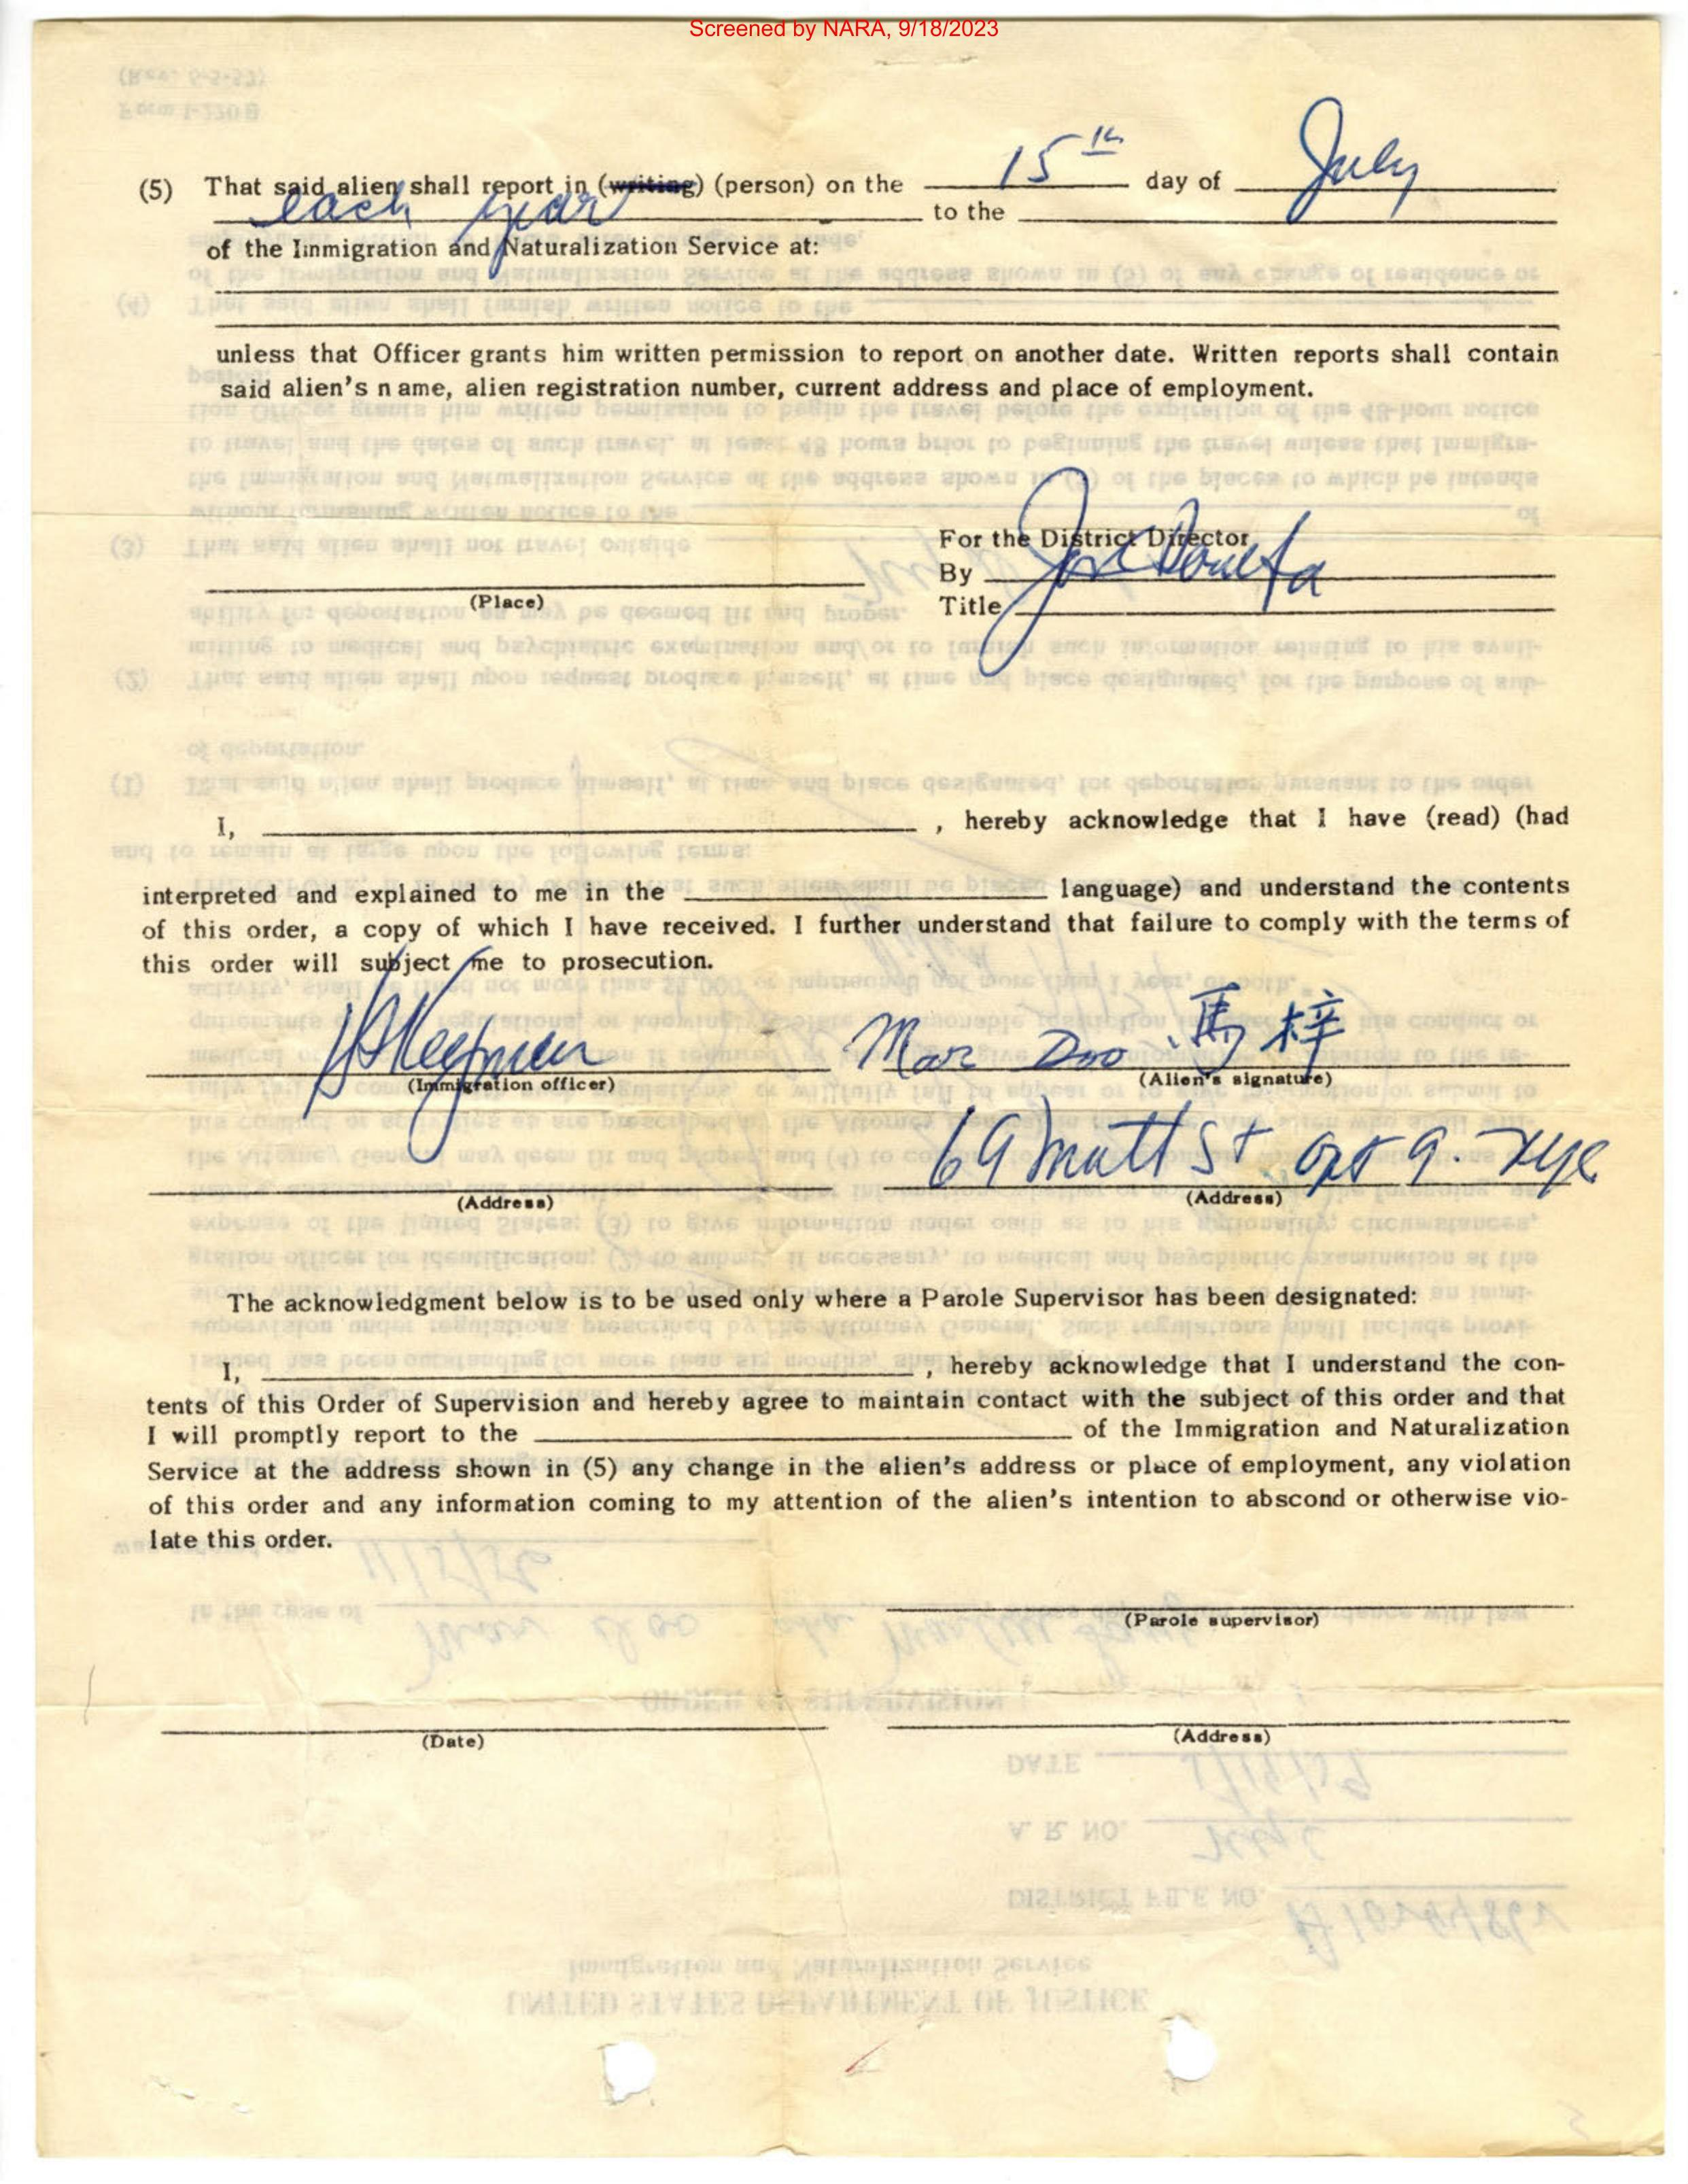 Screened by NARA, 9/18/2023
(5) That said alien shall report in (writing) (person) on the 15th day of July
each year to the
of the Immigration and Naturalization Service at:
unless that Officer grants him written permission to report on another date. Written reports shall contain
said alien's name, alien registration number, current address and place of employment.
For the District Director
By
(Place)
Title
I, , hereby acknowledge that I have (read) (had
interpreted and explained to me in the language) and understand the contents
of this order, a copy of which I have received. I further understand that failure to comply with the terms of
this order will subject me to prosecution.
Mar Doo 馬梓
(Immigration officer) (Alien's signature)
69 Mott St apt 9. NYC
(Address) (Address)
The acknowledgment below is to be used only where a Parole Supervisor has been designated:
I, , hereby acknowledge that I understand the con-
tents of this Order of Supervision and hereby agree to maintain contact with the subject of this order and that
I will promptly report to the of the Immigration and Naturalization
Service at the address shown in (5) any change in the alien's address or place of employment, any violation
of this order and any information coming to my attention of the alien's intention to abscond or otherwise vio-
late this order.
(Parole supervisor)
(Date) (Address)